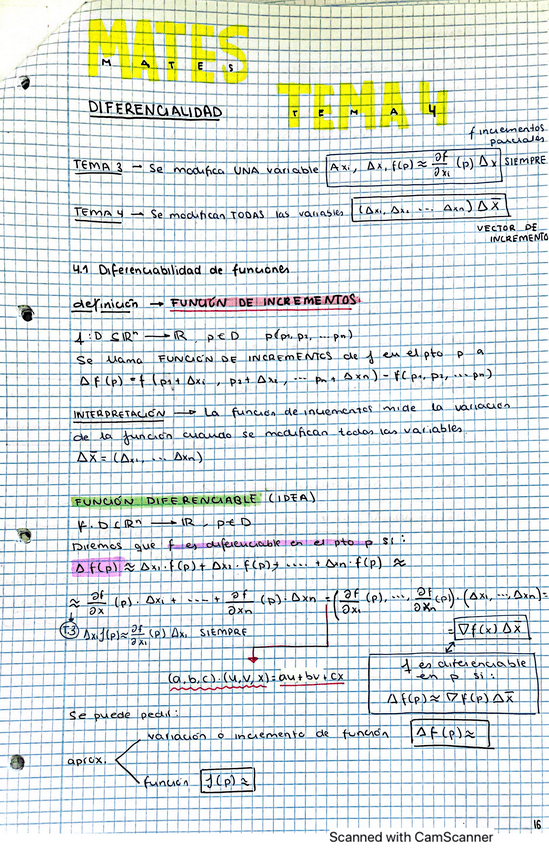 MATES
M A T E S
TEMA 4
T E M A 4
DIFERENCIALIDAD
f incrementos parciales
TEMA 3 → Se modifica UNA variable Δxi, Δx, f(p) ≈ ∂f/∂xi (p) Δx SIEMPRE
TEMA 4 → Se modifican TODAS las variables (Δx1, Δx2 ... Δxn) Δx̄
VECTOR DE INCREMENTO
4.1 Diferenciabilidad de funciones
definición → FUNCIÓN DE INCREMENTOS
f: D ⊆ ℝⁿ → ℝ, p ∈ D p(p1, p2, ... pn)
Se llama FUNCIÓN DE INCREMENTOS de f en el pto p a
Δf(p) = f(p1 + Δx1, p2 + Δx2, ... pn + Δxn) - f(p1, p2, ... pn)
INTERPRETACIÓN → La función de incrementos mide la variación
de la función cuando se modifican todas las variables
Δx̄ = (Δx1, ... Δxn)
FUNCIÓN DIFERENCIABLE (IDEA)
f: D ⊆ ℝⁿ → ℝ, p ∈ D
Diremos que f es diferenciable en el pto p si:
Δf(p) ≈ Δx1·f(p) + Δx2·f(p) + .... + Δxn·f(p) ≈
≈ ∂f/∂x (p)·Δx1 + ... + ∂f/∂xn (p)·Δxn = (∂f/∂x1 (p), ..., ∂f/∂xn (p))·(Δx1, ..., Δxn) =
T.3 Δxi f(p) ≈ ∂f/∂xi (p) Δxi SIEMPRE
= ∇f(x) Δx̄
(a, b, c)·(u, v, x) = au + bv + cx
f es diferenciable
en p si:
Δf(p) ≈ ∇f(p) Δx̄
Se puede pedir:
variación o incremento de función Δf(p) ≈
aprox.
función f(p) ≈
16
Scanned with CamScanner